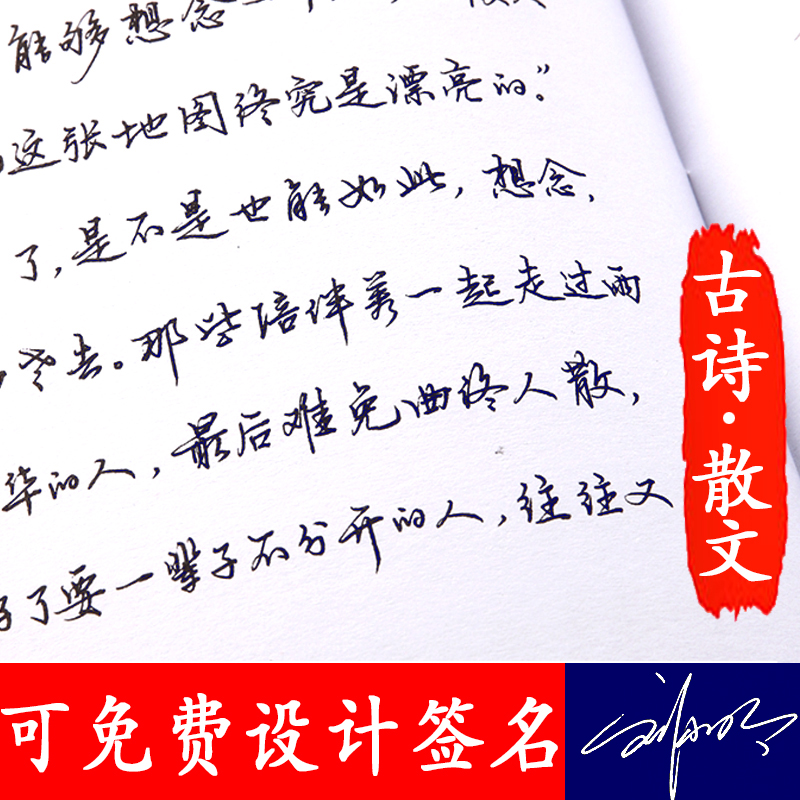 能够想念
这张地图终究是漂亮的。”
了,是不是也能如此,想念,
老去。那些陪伴着一起走过雨
华的人,最后难免曲终人散,
了要一辈子不分开的人,往往又
古诗·散文
可免费设计签名